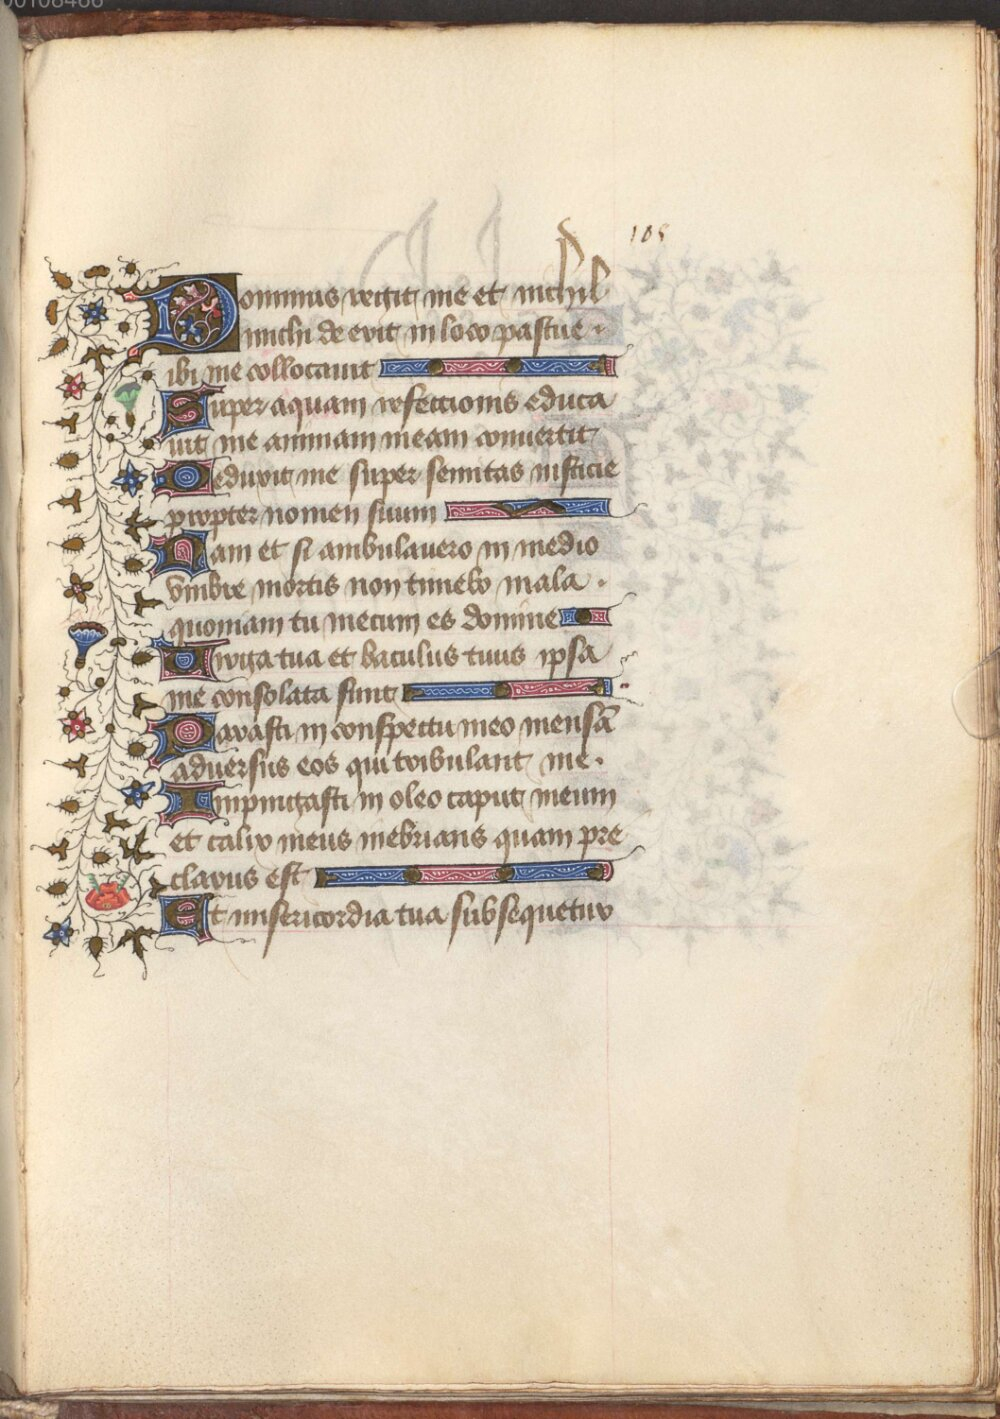 00108466
105
Dominus regit me et nichil
michi deerit in loco pascue ·
ibi me collocauit
Super aquam refectionis educa
uit me animam meam conuertit
Deduxit me super semitas iusticie
propter nomen suum
Nam et si ambulauero in medio
vmbre mortis non timebo mala ·
quoniam tu mecum es domine
Uirga tua et baculus tuus ipsa
me consolata sunt
Parasti in conspectu meo mensã
aduersus eos qui tribulant me ·
Impingasti in oleo caput meum
et calix meus inebrians quam pre
clarus est
Et misericordia tua subsequetur